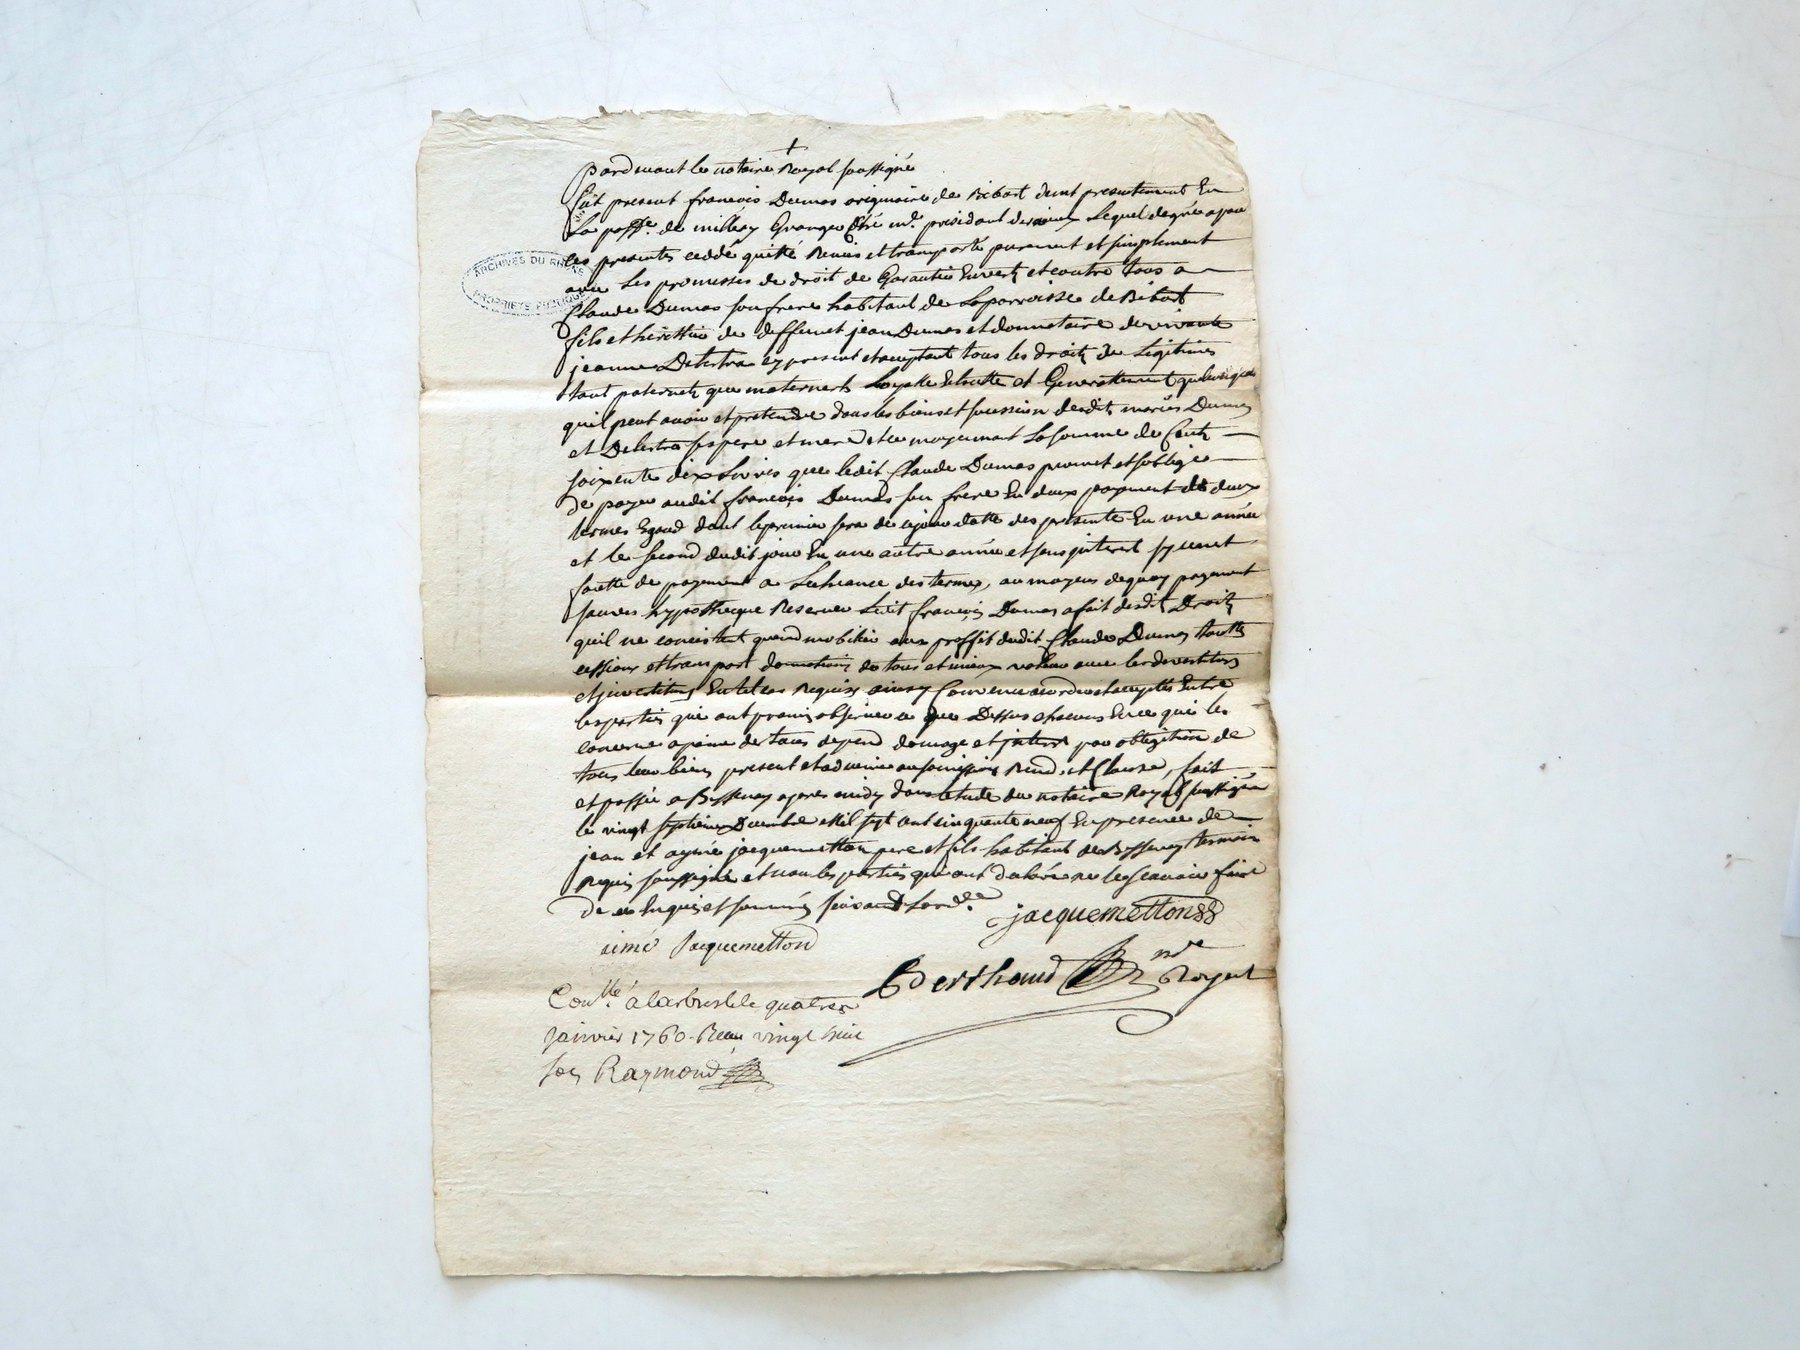 +
Pardevant le notaire Royal soussigné
fut present francois Dumas originaire de Bibost demt presentement En
La passe. de millery Granger me. president Lequel de gré a par
ces presentes ceddé quitté Remis et transporté purement et simplement
avec Les promesses de droit de Garantie Envers et contre tous a
ARCHIVES DU RHÔNE
PROPRIÉTÉ PUBLIQUE
Claude Dumas son frere habitant de La parroisse de Bibost
fils et hérittier de deffunct jean Dumas et donnataire de vivante
jeanne Delestra cy present et acceptant tous les droits de Legitimes
tant paternels que maternels Loyalle Echutte et Generallement quelconques
quil peut avoir et pretendre dans les biens et sucession desdits mariés Dumas
et Delestra ses pere et mere et ce moyennant La somme de Cent
soixente dix Livres que ledit Claude Dumas promet et soblige
de payer audit francois Dumas son frere En deux payement et deux
termes Egaud dont le premier sera de ce jour datte des presente En une année
et le second dudit jour En une autre année et sans jnterest sy ce nest
faulte de payement a Lecheance des termes, au moyen de quoy payement
sauves hypotheque Reservée Ledit francois Dumas a fait desdits Droits
quil ne concistent quend mobilier au proffit dudit Claude Dumas touttes
cessions et transport donnations de tous et mieux vallue avec les devestitures
et jnvestitures En tel cas Requises ainsy Convenu accordé et accepté Entre
les parties qui ont promis observer ce que Dessus chacuns En ce qui les
concerne a peine de tous depend domage et jnterest par obligation de
tous leur biens present et advenir aux soumissions Rend. et Clauze, fait
et passé a Bessenay apres midy dans letude du notaire Royal soussigné
le vingt septieme Decembre Mil sept cent cinquente neuf En presence de
jean et aymé jacquemetton pere et fils habitant de Bessenay temoin
Requis soussigné et non les parties qui ont declaré ne le scavoir faire
de ce Enquis et sommés suivant Lordce
jacquemetton
aimé Jacquemetton
Berthaud nre Royal
Conlle. a larbresle le quatre
janvier 1760. Recu vingt huit
sols Raymond